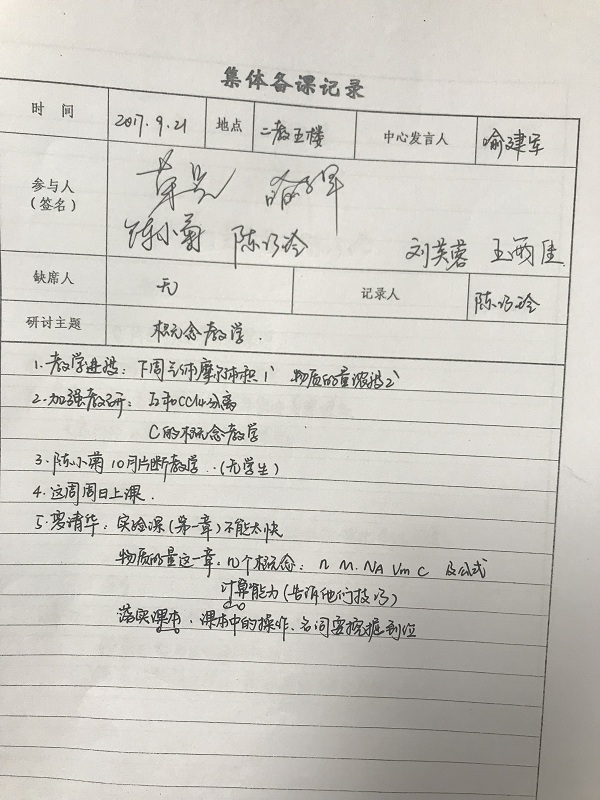 集体备课记录
时 间 2017.9.21 地点 二教五楼 中心发言人 喻建军
参与人
(签名)
陈小菊 陈巧玲 刘芙蓉 王雨佳
缺席人 无 记录人 陈巧玲
研讨主题 概念教学.
1.教学进程：下周气体摩尔体积1' 物质的量浓度2'
2.加强教研：I2和CCl4分离
C的概念教学
3.陈小菊10月片断教学..(无学生)
4.这周周日上课.
5.廖清华：实验课(第一章)不能太快
物质的量这一章：几个概念：n M. NA Vm C 及公式
计算能力(告诉他们技巧)
落实课本.课本中的操作.名词要挖掘到位